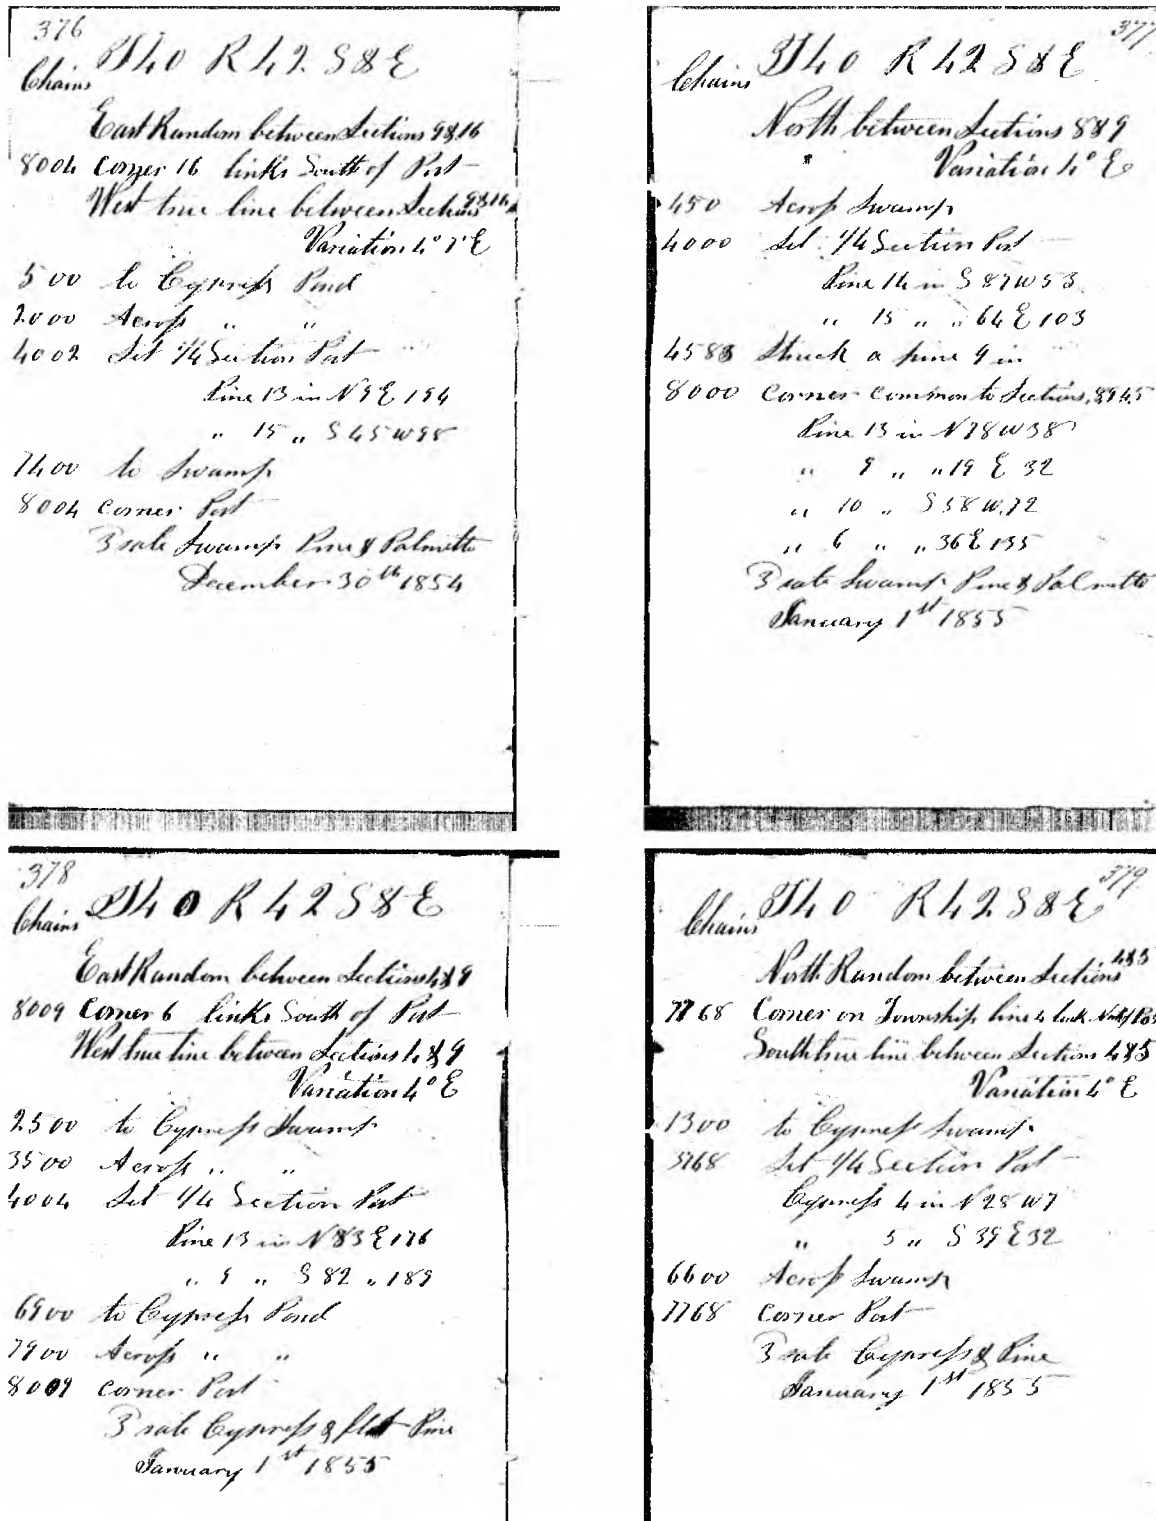 376
T40 R42 S&E
Chains
East Random between Sections 9&16
8004 Corner 16 links South of Post
West true line between Sections 9&16
Variation 4° 7' E
500 to Cypress Pond
2000 Across " "
4002 Set 1/4 Section Post
Pine 13 in N 9 E 194
" 15 " S 45 W 98
7400 to Swamp
8004 Corner Post
3 rate Swamp Pine & Palmetto
December 30th 1854
377
T40 R42 S&E
Chains
North between Sections 8&9
Variation 4° E
450 Across Swamp
4000 Set 1/4 Section Post
Pine 14 in S 87 W 53
" 15 " " 64 E 103
4583 Struck a pine 9 in
8000 Corner Common to Sections, 8945
Pine 13 in N 78 W 38
" 9 " " 19 E 32
" 10 " S 58 W. 72
" 6 " " 36 E 135
3 rate Swamp, Pine & Palmetto
January 1st 1855
378
T40 R42 S&E
Chains
East Random between Sections 4&9
8009 Corner 6 links South of Post
West true line between Sections 4&9
Variation 4° E
2500 to Cypress Swamp
3500 Across " "
4004 Set 1/4 Section Post
Pine 13 in N 83 E 176
" 9 " S 82 " 189
6900 to Cypress Pond
7900 Across " "
8009 Corner Post
3 rate Cypress & flat Pine
January 1st 1855
379
T40 R42 S&E
Chains
North Random between Sections 4&5
7768 Corner on Township line 4 link N of Pos
South true line between Sections 4&5
Variation 4° E
1300 to Cypress Swamp
3768 Set 1/4 Section Post
Cypress 4 in N 28 W 7
" 5 " S 39 E 32
6600 Across Swamp
7768 Corner Post
3 rate Cypress & Pine
January 1st 1855